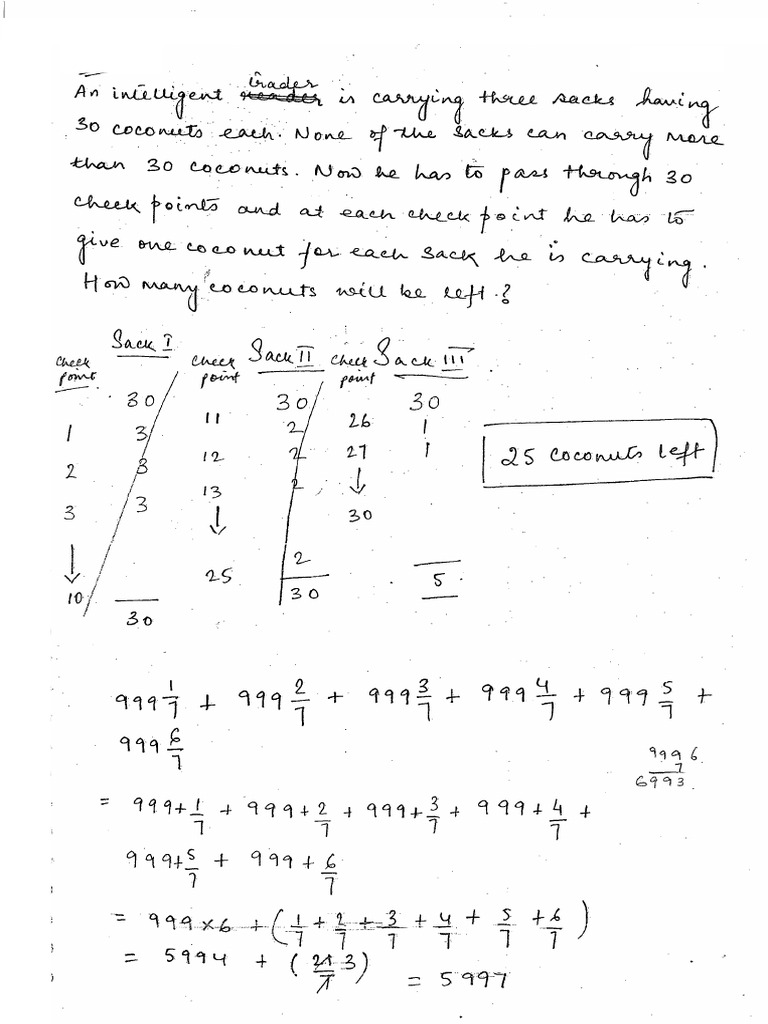 An intelligent trader is carrying three sacks having
30 coconuts each. None of the sacks can carry more
than 30 coconuts. Now he has to pass through 30
check points and at each check point he has to
give one coconut for each sack he is carrying.
How many coconuts will be left?
Sack I Sack II Sack III
check point check point check point
30 30 30
1 3 11 2 26 1
2 3 12 2 27 1
3 3 13 2 ↓
↓ ↓ 30
10 25 2
30 30 5
25 coconuts left
999 1/7 + 999 2/7 + 999 3/7 + 999 4/7 + 999 5/7 +
999 6/7
999 6
7
6993
= 999+1/7 + 999+2/7 + 999+3/7 + 999+4/7 +
999+5/7 + 999+6/7
= 999×6 + (1/7+2/7+3/7+4/7+5/7+6/7)
= 5994 + (21/7 3) = 5997